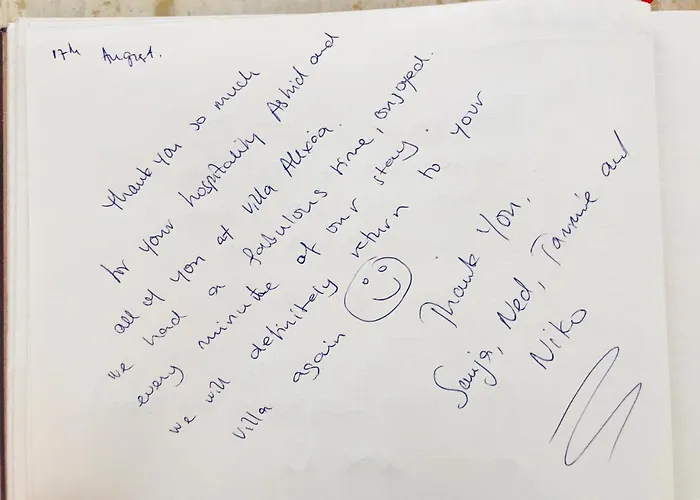 17th August.
Thank you so much
for your hospitality Astrid and
all of you at Villa Alexia.
we had a fabulous time, enjoyed
every minute of our stay.
we will definitely return to your
villa again
Thank you.
Sanja, Ned, Tammie and
Niko